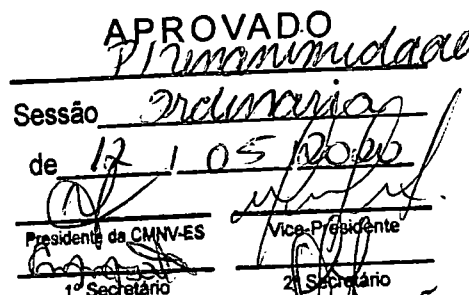 APROVADO
P/ Unanimidade
Sessão Ordinaria
de 12 / 05 / 2020
Presidente da CMNV-ES Vice-Presidente
1º Secretário 2º Secretário